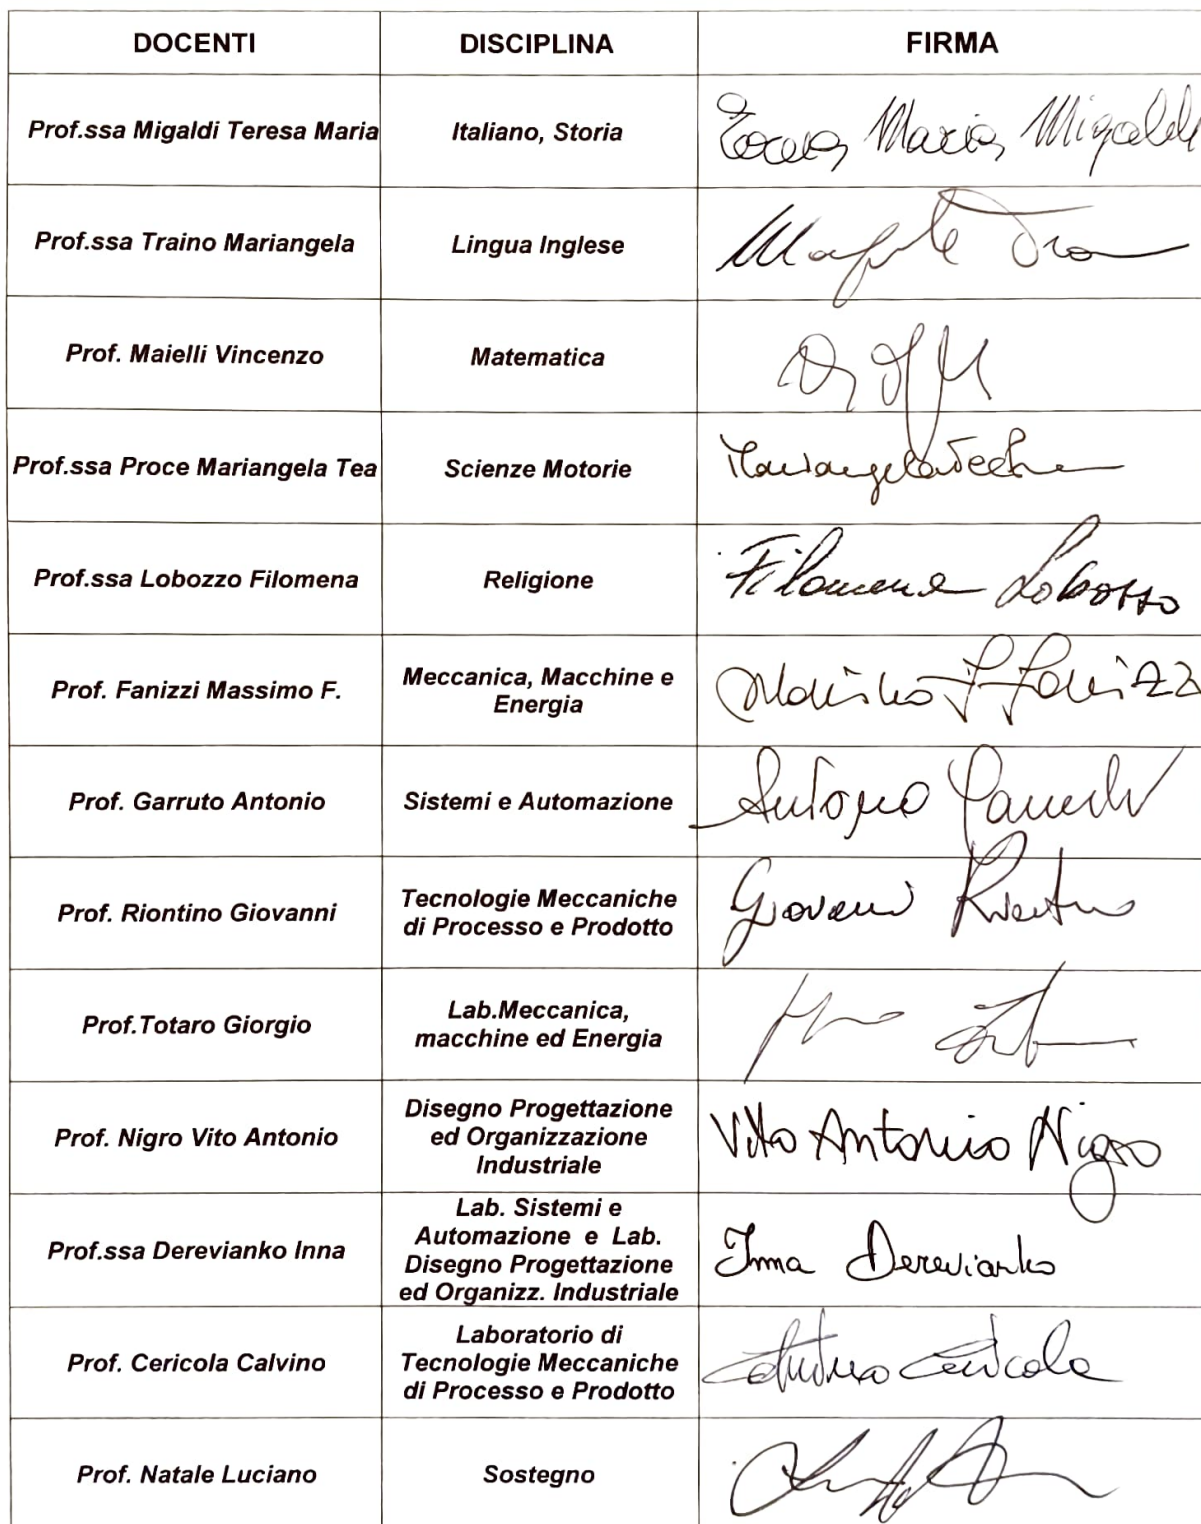 DOCENTI DISCIPLINA FIRMA
Prof.ssa Migaldi Teresa Maria Italiano, Storia Teresa Maria Migaldi
Prof.ssa Traino Mariangela Lingua Inglese
Prof. Maielli Vincenzo Matematica
Prof.ssa Proce Mariangela Tea Scienze Motorie Mariangela Tea
Prof.ssa Lobozzo Filomena Religione Filomena Lobozzo
Prof. Fanizzi Massimo F. Meccanica, Macchine e
Energia Massimo F Fanizzi
Prof. Garruto Antonio Sistemi e Automazione Antonio Garruto
Prof. Riontino Giovanni Tecnologie Meccaniche
di Processo e Prodotto Giovanni Riontino
Prof.Totaro Giorgio Lab.Meccanica,
macchine ed Energia
Prof. Nigro Vito Antonio Disegno Progettazione
ed Organizzazione
Industriale Vito Antonio Nigro
Prof.ssa Derevianko Inna Lab. Sistemi e
Automazione e Lab.
Disegno Progettazione
ed Organizz. Industriale Inna Derevianko
Prof. Cericola Calvino Laboratorio di
Tecnologie Meccaniche
di Processo e Prodotto Cericola
Prof. Natale Luciano Sostegno